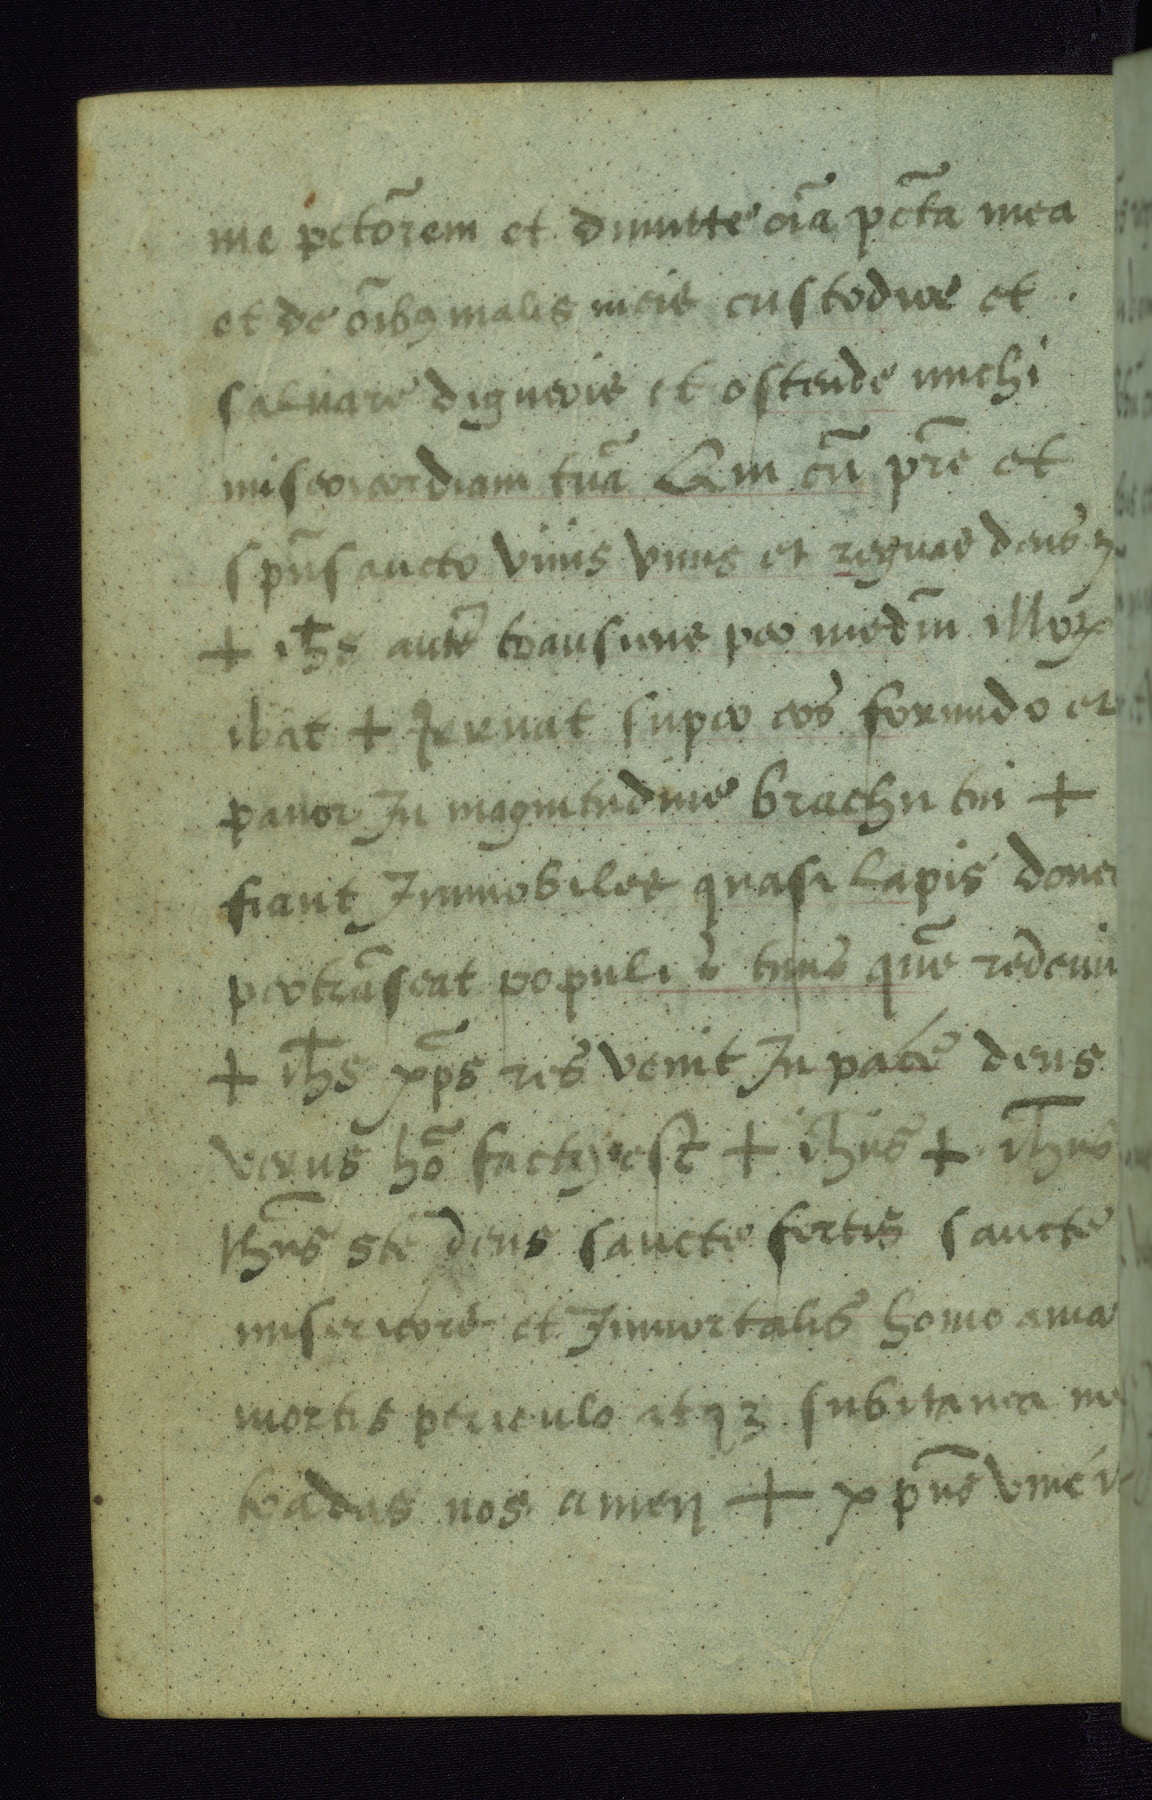 me pctōrem et dimitte oīa pctā mea
et de oībꝫ malis meis custodire et
saluare digneris et ostende michi
misericordiam tuā Qui cū prē et
spū sancto viuis vnus et regnas deus
+ ihs autē transiens per mediū illoꝝ
ibat + Irruat super eos formido et
pauor In magnitudine brachii tui +
fiant Immobiles quasi lapis donec
pertrāseat populus tuus quē redemi
+ ihs xps res venit In pace deus
verus hō factꝰ est + ihus + ihus
Ihus stē deus sancte fortis sancte
misericors et Inmortalis homo a ma
mortis periculo atqꝫ subitanea
tradas nos amen + xpūs